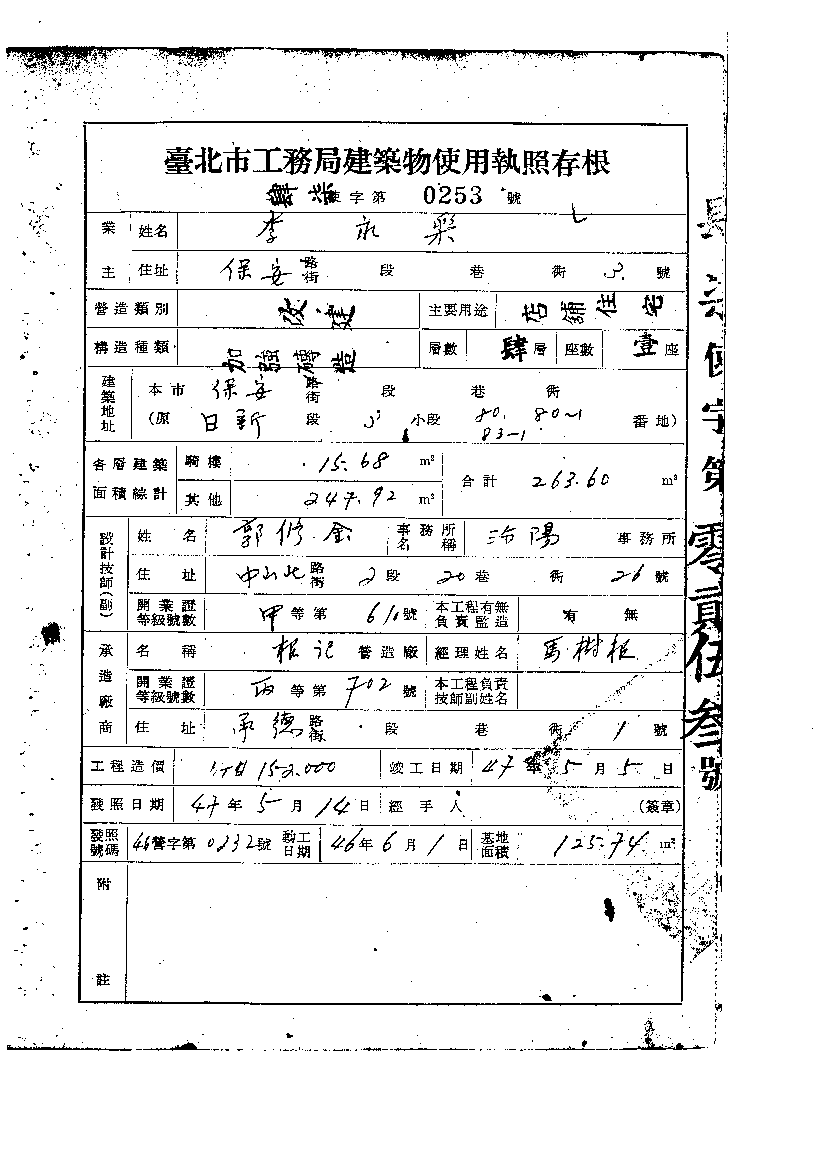 臺北市工務局建築物使用執照存根
肆柒使字第 0253 號
業主 姓名 李永彩
住址 保安路街 段 巷 衖 3 號
營造類別 改建 主要用途 店舖住宅
構造種類 加強磚造 層數 肆層 座數 壹座
建築地址 本市 保安路街 段 巷 衖
(原 日新 段 3 小段 80. 80-1 83-1 番地)
各層建築面積總計 騎樓 15.68 m² 合計 263.60 m²
其他 247.92 m²
設計技師(副) 姓名 郭修金 事務所名稱 沿陽 事務所
住址 中山北路街 2段 20巷 衖 26號
開業證等級號數 甲等第 610號 本工程有無負責監造 有 無
承造廠商 名稱 根記 營造廠 經理姓名 馬樹根
開業證等級號數 丙等第 702 號 本工程負責技師副姓名
住址 承德路街 段 巷 衖 1 號
工程造價 152.000 竣工日期 47年5月5日
發照日期 47年5月14日 經手人 (簽章)
發照號碼 46營字第0232號 動工日期 46年6月1日 基地面積 125.74 m²
附註
使字第零貳伍叁號